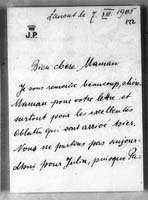 J.P.
Laurent le 7. VII 1905
Bien chère Maman
Je vous remercie beaucoup, chère
Maman pour votre lettre et
surtout pour les excellentes
qui sont arrivé hier.
Nous ne partons pas aujour-
dhui pour Julin, puisque Pa-